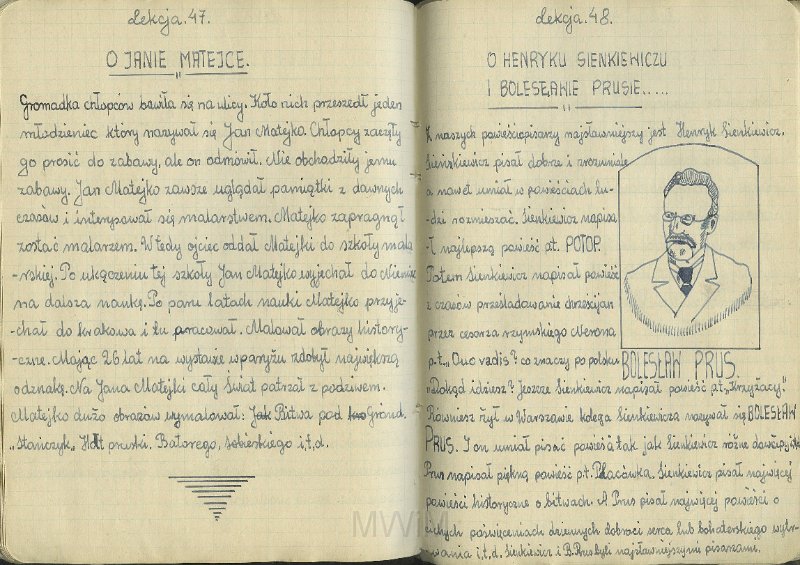 Lekcja.47.
O JANIE MATEJCE.
Gromadka chłopców bawiła się na ulicy. Koło nich przeszedł jeden
młodzieniec który nazywał się Jan Matejko. Chłopcy zaczęły
go prosić do zabawy, ale on odmówił. Nie obchodziły jemu
zabawy. Jan Matejko zawsze uglądał pamiątki z dawnych
czasów i interysował się malarstwem. Matejko zapragnął
zostać malarzem. W tedy ojciec oddał Matejki do szkoły mala
-rskiej. Po ukączeniu tej szkoły Jan Matejko wyjechał do Niemiec
na dalsza naukę. Po paru latach nauki Matejko przyje-
-chał do krakowa i tu pracował. Malował obrazy history-
-czne. Mając 26 lat na wystawie w paryżu zdobył największą
odznakę. Na Jana Matejki cały świat patrzał z podziwem.
Matejko dużo obrazów wymalował: Bitwa pod Grund.
"Stańczyk" Hołt pruski. Batorego, sobieskiego i,t,d.
Lekcja.48.
O HENRYKU SIENKIEWICZU
I BOLESŁAWIE PRUSIE.....
Z naszych powieściopisarzy najsławniejszy jest Henryk Sienkiewicz.
Sieńkiewicz pisał dobrze i zrozumiale
a nawet umiał w powieściach lu-
-dzi rozmieszać. Sienkiewicz napisa
-ł najlepszą powieść pt. POTOP.
Potem Sienkiewicz napisał powieść
z czasów prześladowanie chrześcjan
przez cesarza rzymskiego Nerona
p.t. „Quo vadis? co znaczy po polsku
„Dokąd idziesz? Jeszcze Sienkiewicz napisał powieść p.t. „Krzyżacy"
BOLESŁAW PRUS.
Również żył w Warszawie kolega Sienkiewicza nazywał się BOLESŁAW
PRUS. I on umiał pisać powieś a tak jak Sienkiewicz różne
Prus napisał piękną powieść p.t. Placówka. Sienkiewicz pisał najwięcej
powieści historyczne o bitwach. A Prus pisał najwięcej powieści o
cichych poświęceniach dziennych dobroci serca lub bohaterskiego wytr-
-wania i,t,d. Sienkiewicz i B.Prus byli najsławniejszymi pisarzami.
MWiM